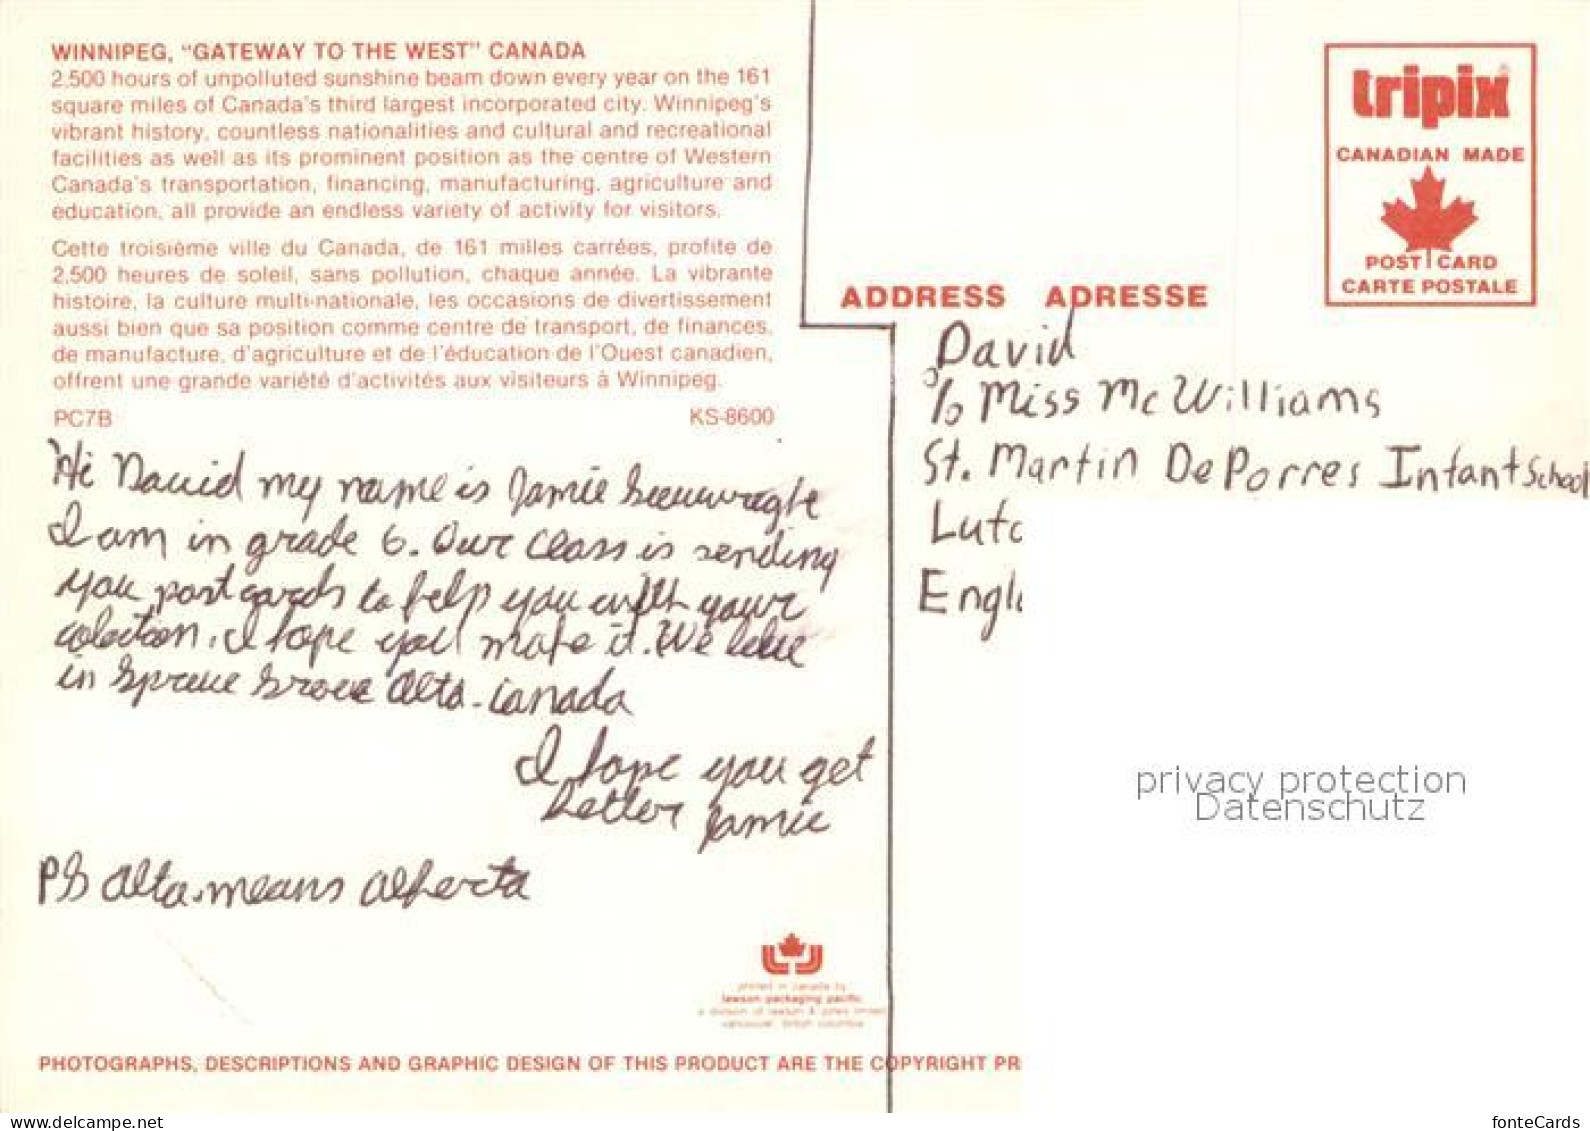 WINNIPEG, "GATEWAY TO THE WEST" CANADA
2,500 hours of unpolluted sunshine beam down every year on the 161
square miles of Canada's third largest incorporated city. Winnipeg's
vibrant history, countless nationalities and cultural and recreational
facilities as well as its prominent position as the centre of Western
Canada's transportation, financing, manufacturing, agriculture and
education, all provide an endless variety of activity for visitors.
Cette troisième ville du Canada, de 161 milles carrées, profite de
2,500 heures de soleil, sans pollution, chaque année. La vibrante
histoire, la culture multi-nationale, les occasions de divertissement
aussi bien que sa position comme centre de transport, de finances,
de manufacture, d'agriculture et de l'éducation de l'Ouest canadien,
offrent une grande variété d'activités aux visiteurs à Winnipeg.
PC7B KS-8600
Hi David my name is Jamie
I am in grade 6. Our class is sending
you post cards to help you with your
colection. I hope you make it. We live
in Spruce Grove Alta. Canada
I hope you get
better Jamie
PS Alta. means Alberta
tripix
CANADIAN MADE
POST CARD
CARTE POSTALE
ADDRESS ADRESSE
David
c/o Miss McWilliams
St. Martin De Porres Infant School
Luto
Engl
privacy protection
Datenschutz
printed in canada by
lawson packaging pacific
a division of lawson & jones limited
vancouver, british columbia
PHOTOGRAPHS, DESCRIPTIONS AND GRAPHIC DESIGN OF THIS PRODUCT ARE THE COPYRIGHT PR
www.delcampe.net
fonteCards